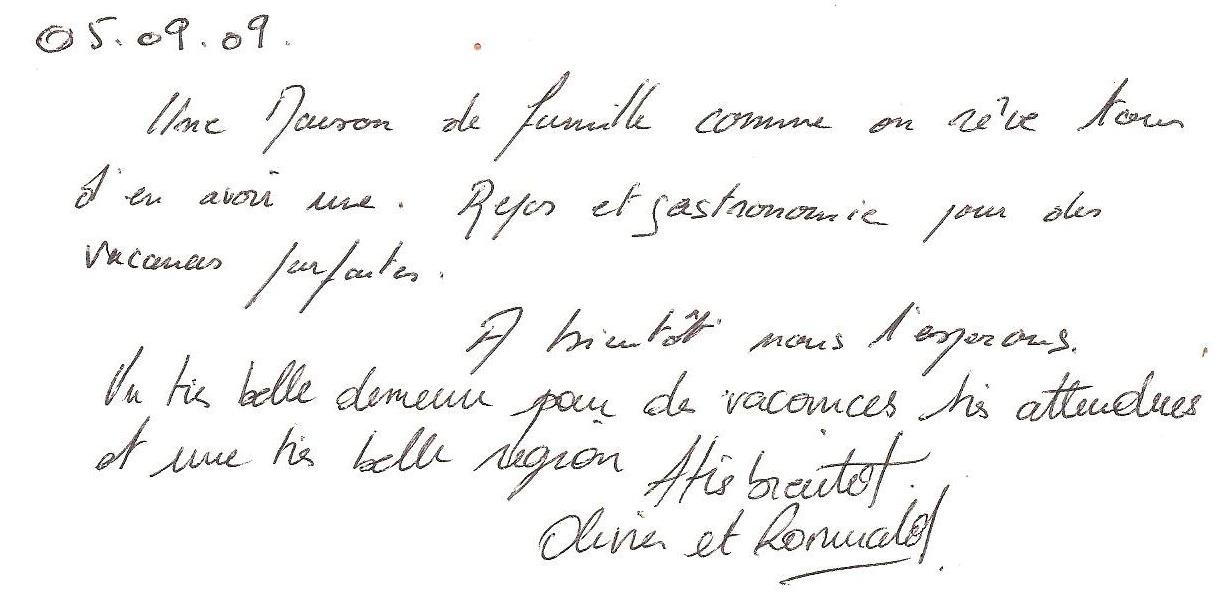 05.09.09.
Une Maison de famille comme on rêve tous
d'en avoir une. Repos et gastronomie pour des
vacances parfaites.
A bientôt nous l'esperons.
Un très belle demeure pour de vacances très attendues
et une très belle région A très bientot.
Olivier et Romuald.